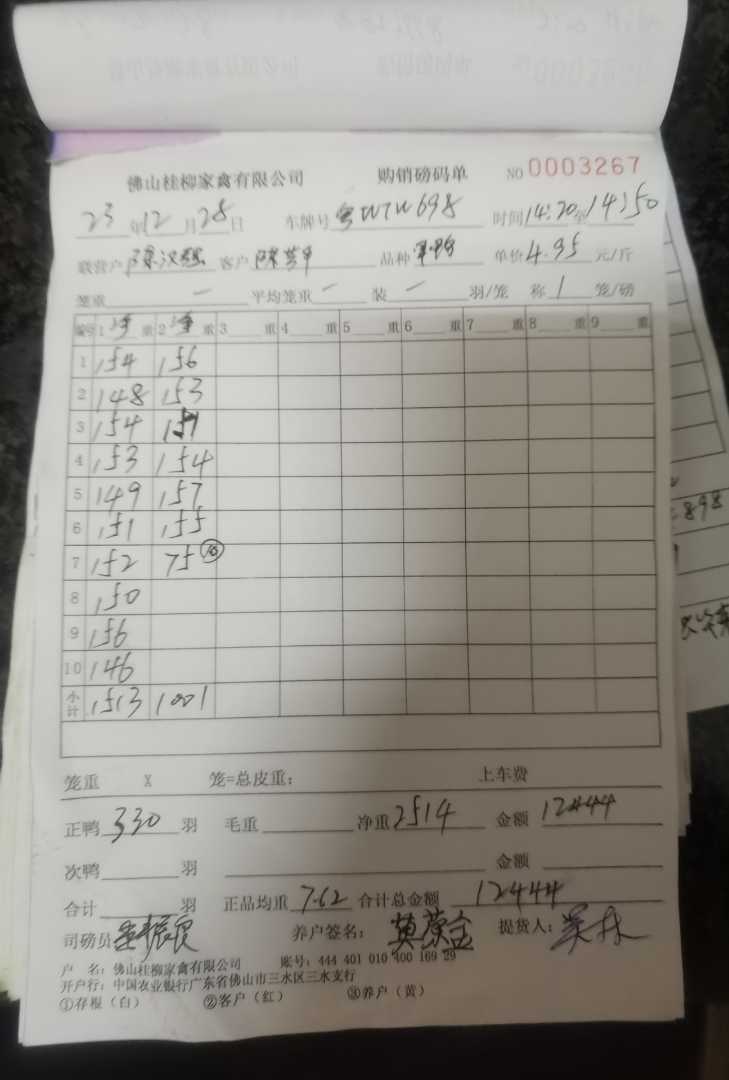 佛山桂柳家禽有限公司 购销磅码单 NO 0003267
23年12月28日 车牌号粤WTW698 时间14:20至14:50
联营户陈汉强 客户 品种 单价4.95元/斤
笼重 一 平均笼重 一 装 一 羽/笼 称 1 笼/磅
编号 1净重 2净重 3 重 4 重 5 重 6 重 7 重 8 重 9 重
1 154 156
2 148 153
3 154 151
4 153 154
5 149 157
6 151 155
7 152 75 ⑩
8 150
9 156
10 146
小计 1513 1001
笼重 X 笼=总皮重: 上车费
正鸭330羽 毛重 净重2514 金额12444
次鸭 羽 金额
合计 羽 正品均重7.62 合计总金额12444
司磅员 养户签名: 莫荣金 提货人:
户 名: 佛山桂柳家禽有限公司 账号: 444 401 010 400 169 29
开户行: 中国农业银行广东省佛山市三水区三水支行
①存根(白) ②客户(红) ③养户(黄)
898